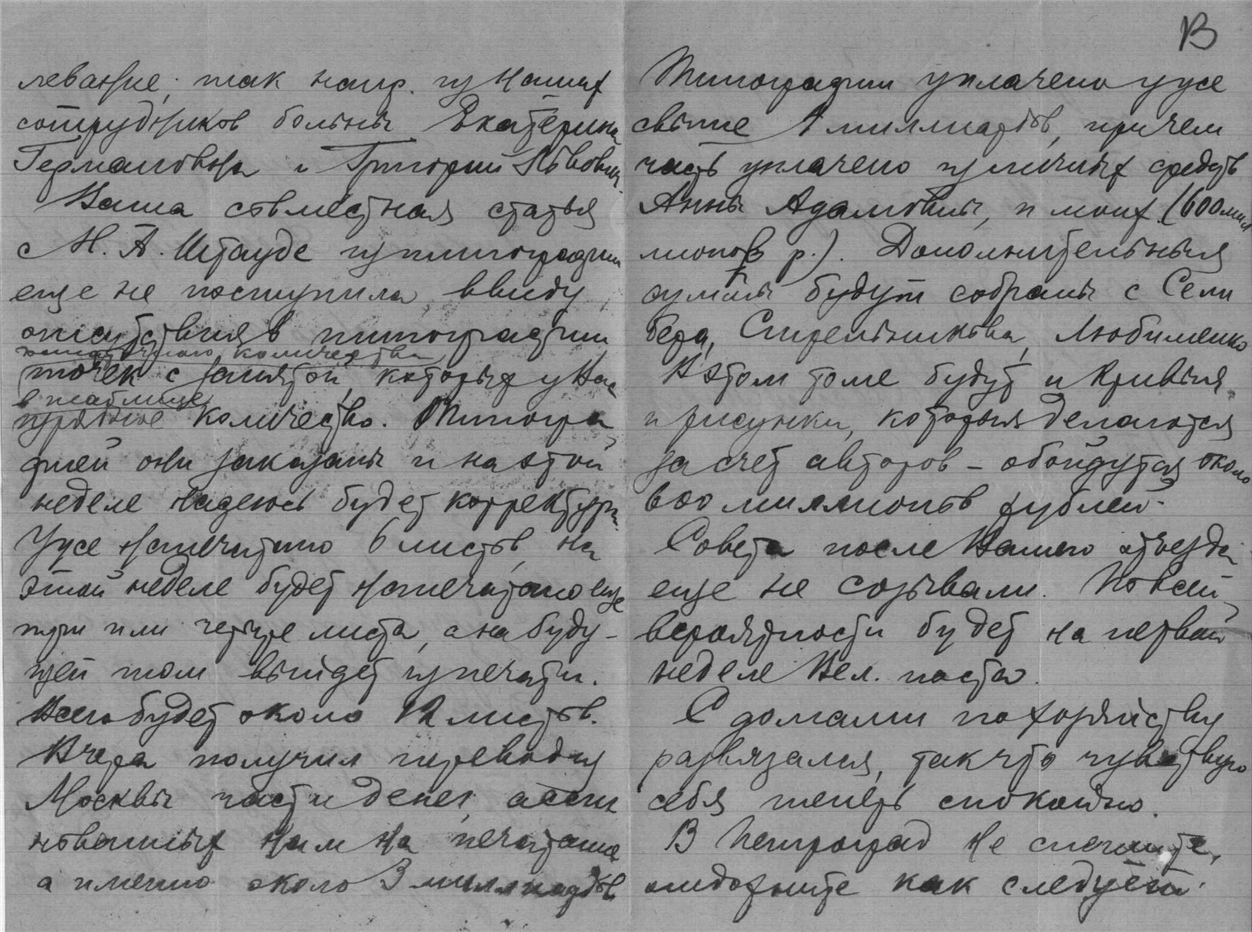 левание; так напр. из наших
сотрудников больны Екатерина
Германовна и Григорий Львович.
Ваша совместная статья
с Н. А. Штауде из типографии
еще не поступила, ввиду
отсутствия в типографии
количества
точек с запятой, которых у Вас
в таблице
количество. Типогра
фией они заказаны и на этой
неделе надеюсь будет корректура.
Уже напечатано 6 листов, на
этой неделе будет напечатано еще
три или четыре листа, а на буду-
щей том выйдет из печати.
Всего будет около 12 листов.
Вчера получил переводку
Москвы части денег, ассиг
нованных нам на печатание
а именно около 3 миллиардов
В
Типографии уплачено уже
свыше 1 миллиардов, причем
часть уплачено из личных средств
Анны Адамовны, и моих (600 мил
лионов р.). Дополнительныя
суммы будут собраны с Сели
бера, Стрельникова, Любименко
В этом томе будут и кривыя
и рисунки, которыя делаются
за счет авторов – обойдутся около
800 миллионов рублей.
Совета после Вашего отъезда
еще не созывали. По всей
вероятности будет на первой
неделе Вел. поста.
С домами по хозяйству
развязался, так что чувствую
себя теперь спокойно.
В Петроград не спешите,
отдохните как следует.